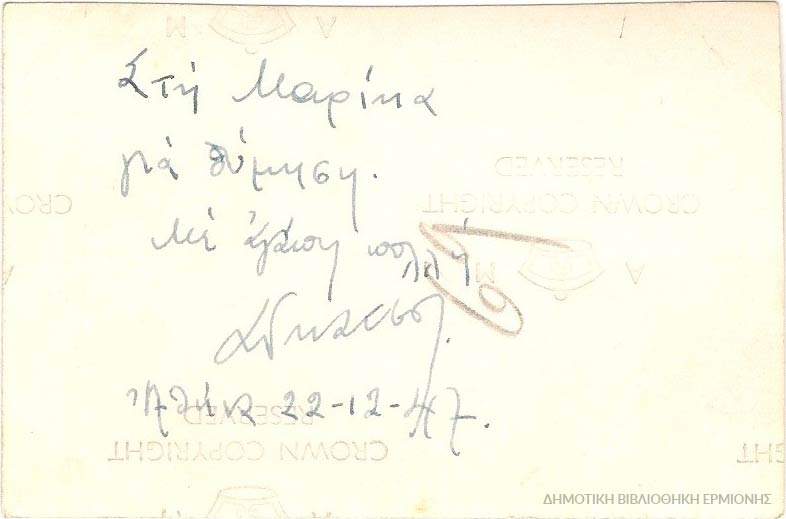 Στή Μαρίκα
γιά θύμηση.
Μέ ἀγάπη πολλή
Ἀθήνα 22-12-47.
69
A M
CROWN COPYRIGHT
RESERVED
CROWN COPYRIGHT
RESERVED
A M
CRO
GHT
ΔΗΜΟΤΙΚΗ ΒΙΒΛΙΟΘΗΚΗ ΕΡΜΙΟΝΗΣ